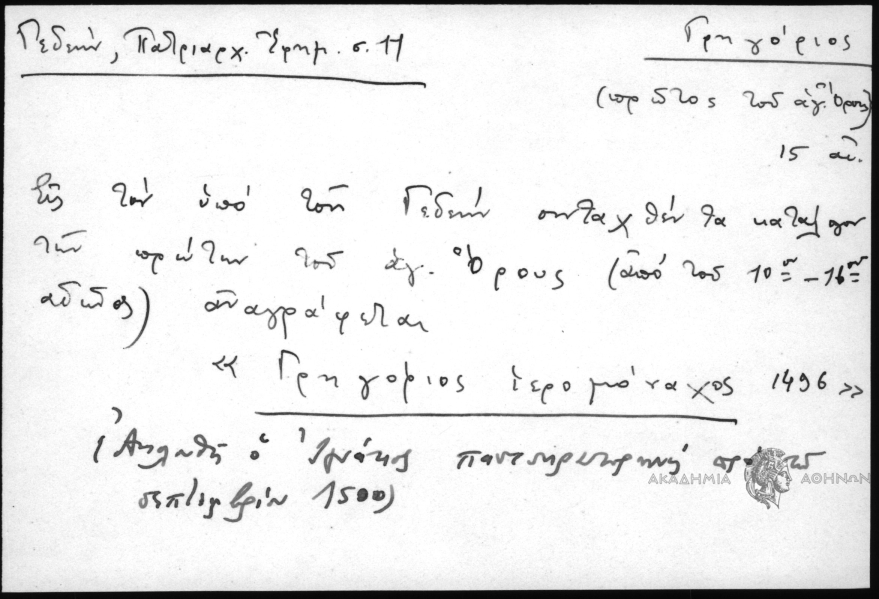 Γεδεών, Πατριαρχ. Ἐφημ. σ. 11
Γρηγόριος
(πρῶτος τοῦ ἁγ. Ὄρους)
15 αἰ.
Εἰς τὸν ὑπὸ τοῦ Γεδεὼν συνταχθέντα κατάλογον
τῶν πρώτων τοῦ ἁγ. Ὄρους (ἀπὸ τοῦ 10ου – 16ου
αἰῶνος) ἀναγράφεται
« Γρηγόριος ἱερομόναχος 1496 »
(Ἀκολουθεῖ ὁ Ἰγνάτιος παντοκρατορηνὸς πρὸ τοῦ
σεπτεμβρίου 1500)
ΑΚΑΔΗΜΙΑ ΑΘΗΝΩΝ